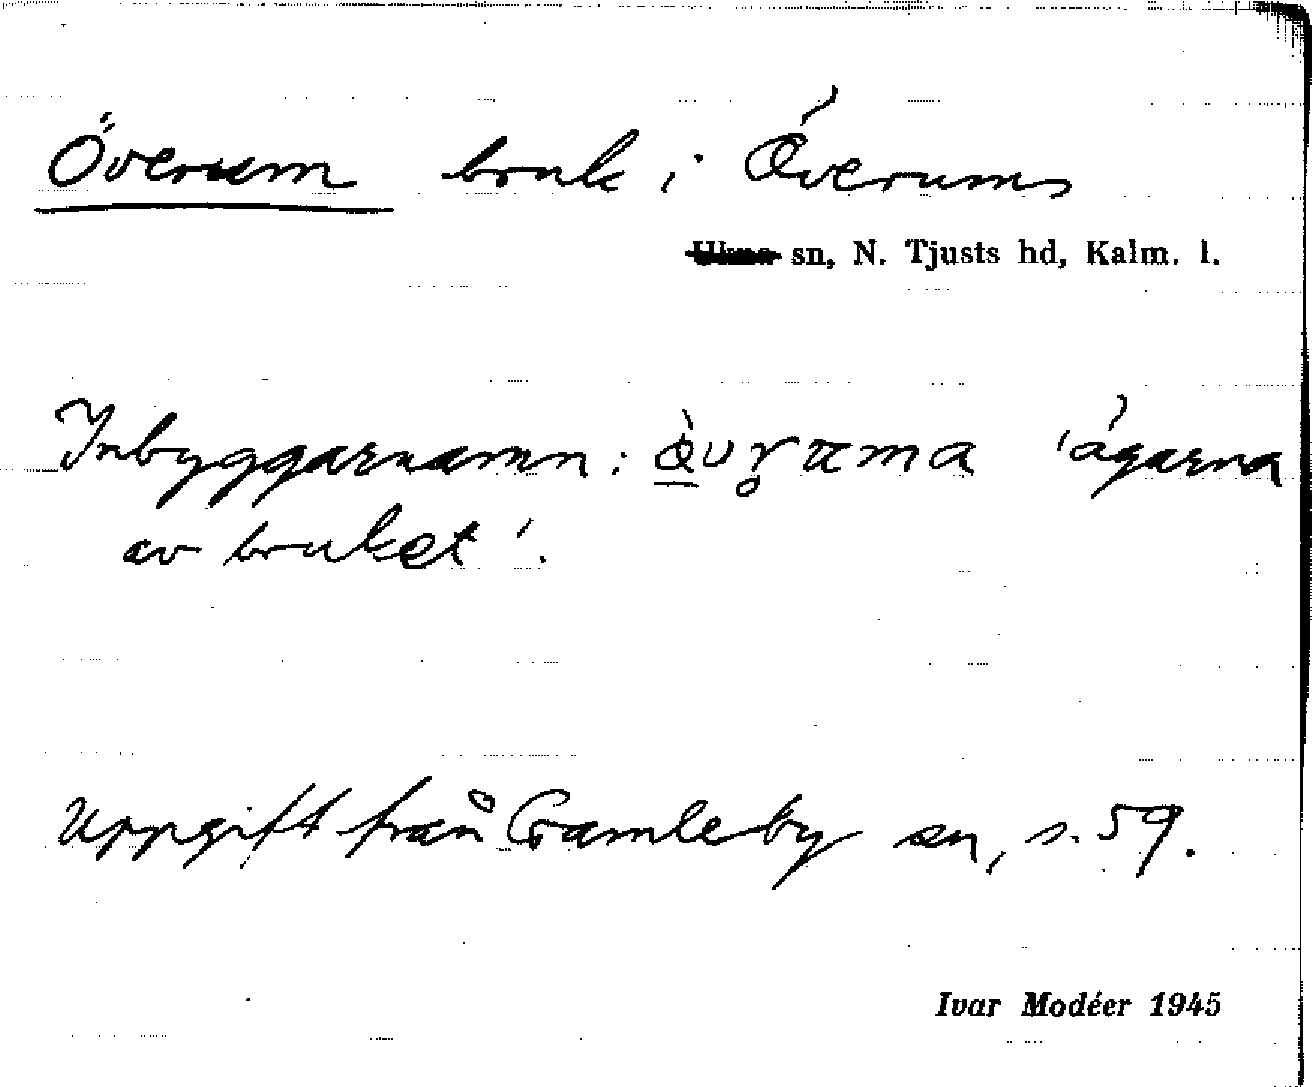 Överum bruk i Överums
~~Ukna~~ sn, N. Tjusts hd, Kalm. l.
Inbyggarnamn: 'ägarna
av bruket'.
Uppgift från Gamleby sn, s. 59.
Ivar Modéer 1945